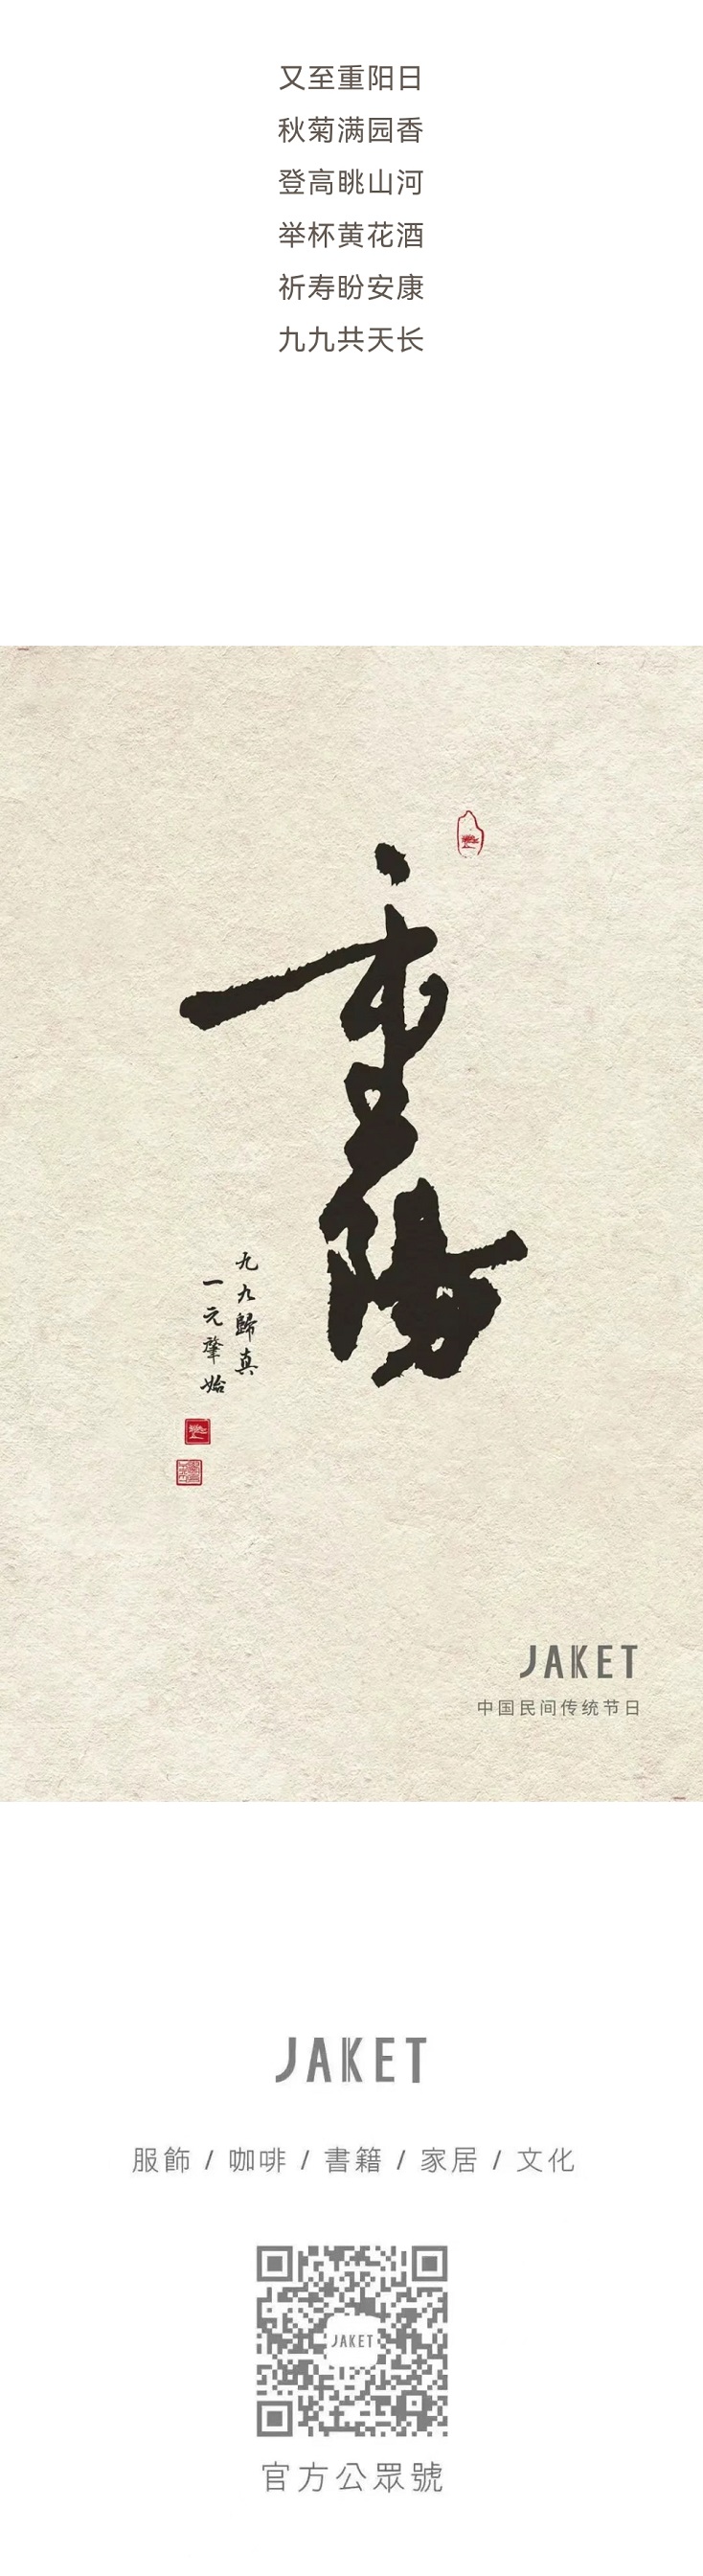 又至重阳日
秋菊满园香
登高眺山河
举杯黄花酒
祈寿盼安康
九九共天长
重陽
九九歸真
一元肇始
JAKET
中国民间传统节日
JAKET
服飾 / 咖啡 / 書籍 / 家居 / 文化
JAKET
官方公眾號